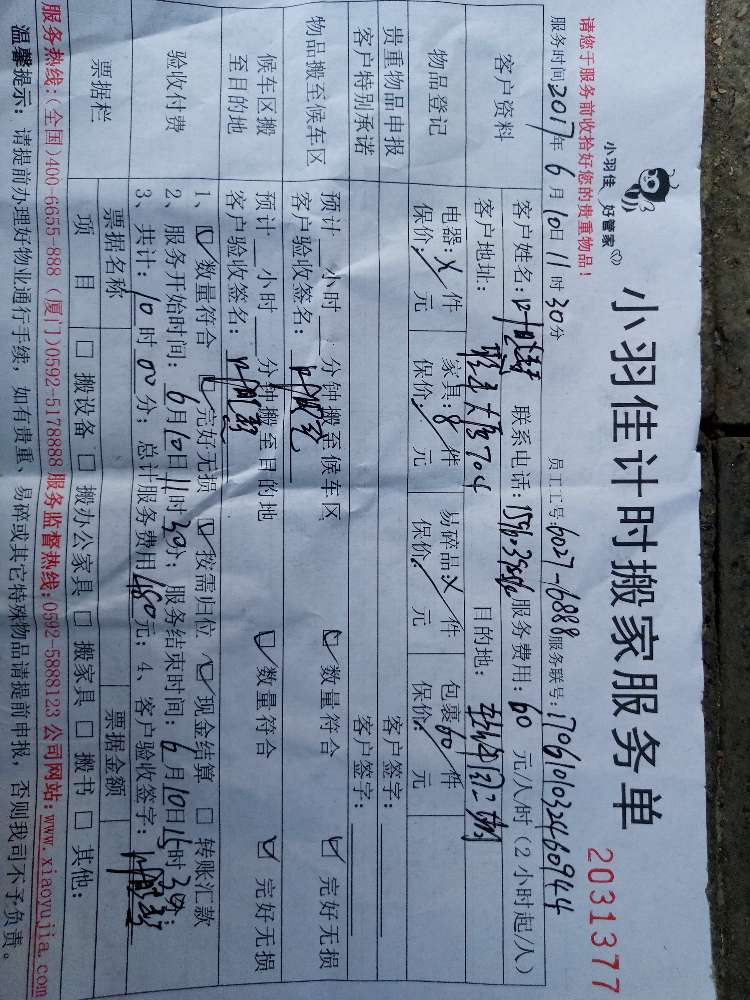 小羽佳 好管家
小羽佳计时搬家服务单
2031377
请您于服务前收拾好您的贵重物品！
服务时间2017年6月10日11时30分 员工工号:6027-16888 服务联号:
客户资料
客户姓名: 联系电话: 服务费用:60元/人/时(2小时起/人)
客户地址: 704 目的地:
物品登记
电器:X件 家具:8件 易碎品:X件 包裹60件
保价:/元 保价:/元 保价:/元 保价:/元
贵重物品申报 客户签字:
客户特别承诺 客户签字:
物品搬至候车区
预计__小时__分钟搬至候车区 数量符合 完好无损
客户验收签名:
候车区搬至目的地
预计__小时__分钟搬至目的地 数量符合 完好无损
客户验收签名:
验收付费
1、数量符合 完好无损 按需归位 现金结算 □ 转账汇款
2、服务开始时间:6月10日11时30分; 服务结束时间:6月10日15时30分;
3、共计:10时00分; 总计服务费用480元; 4、客户验收签字:
票据栏
票据名称 票据金额
项 目 □ 搬设备 □ 搬办公家具 □ 搬家具 □ 搬书 □ 其他:
服务热线:(全国)400-6655-888 (厦门)0592-5178888 服务监督热线:0592-5888123 公司网站:www.xiaoyujia.com
温馨提示: 请提前办理好物业通行手续, 如有贵重、易碎或其它特殊物品请提前申报, 否则我司不予负责。